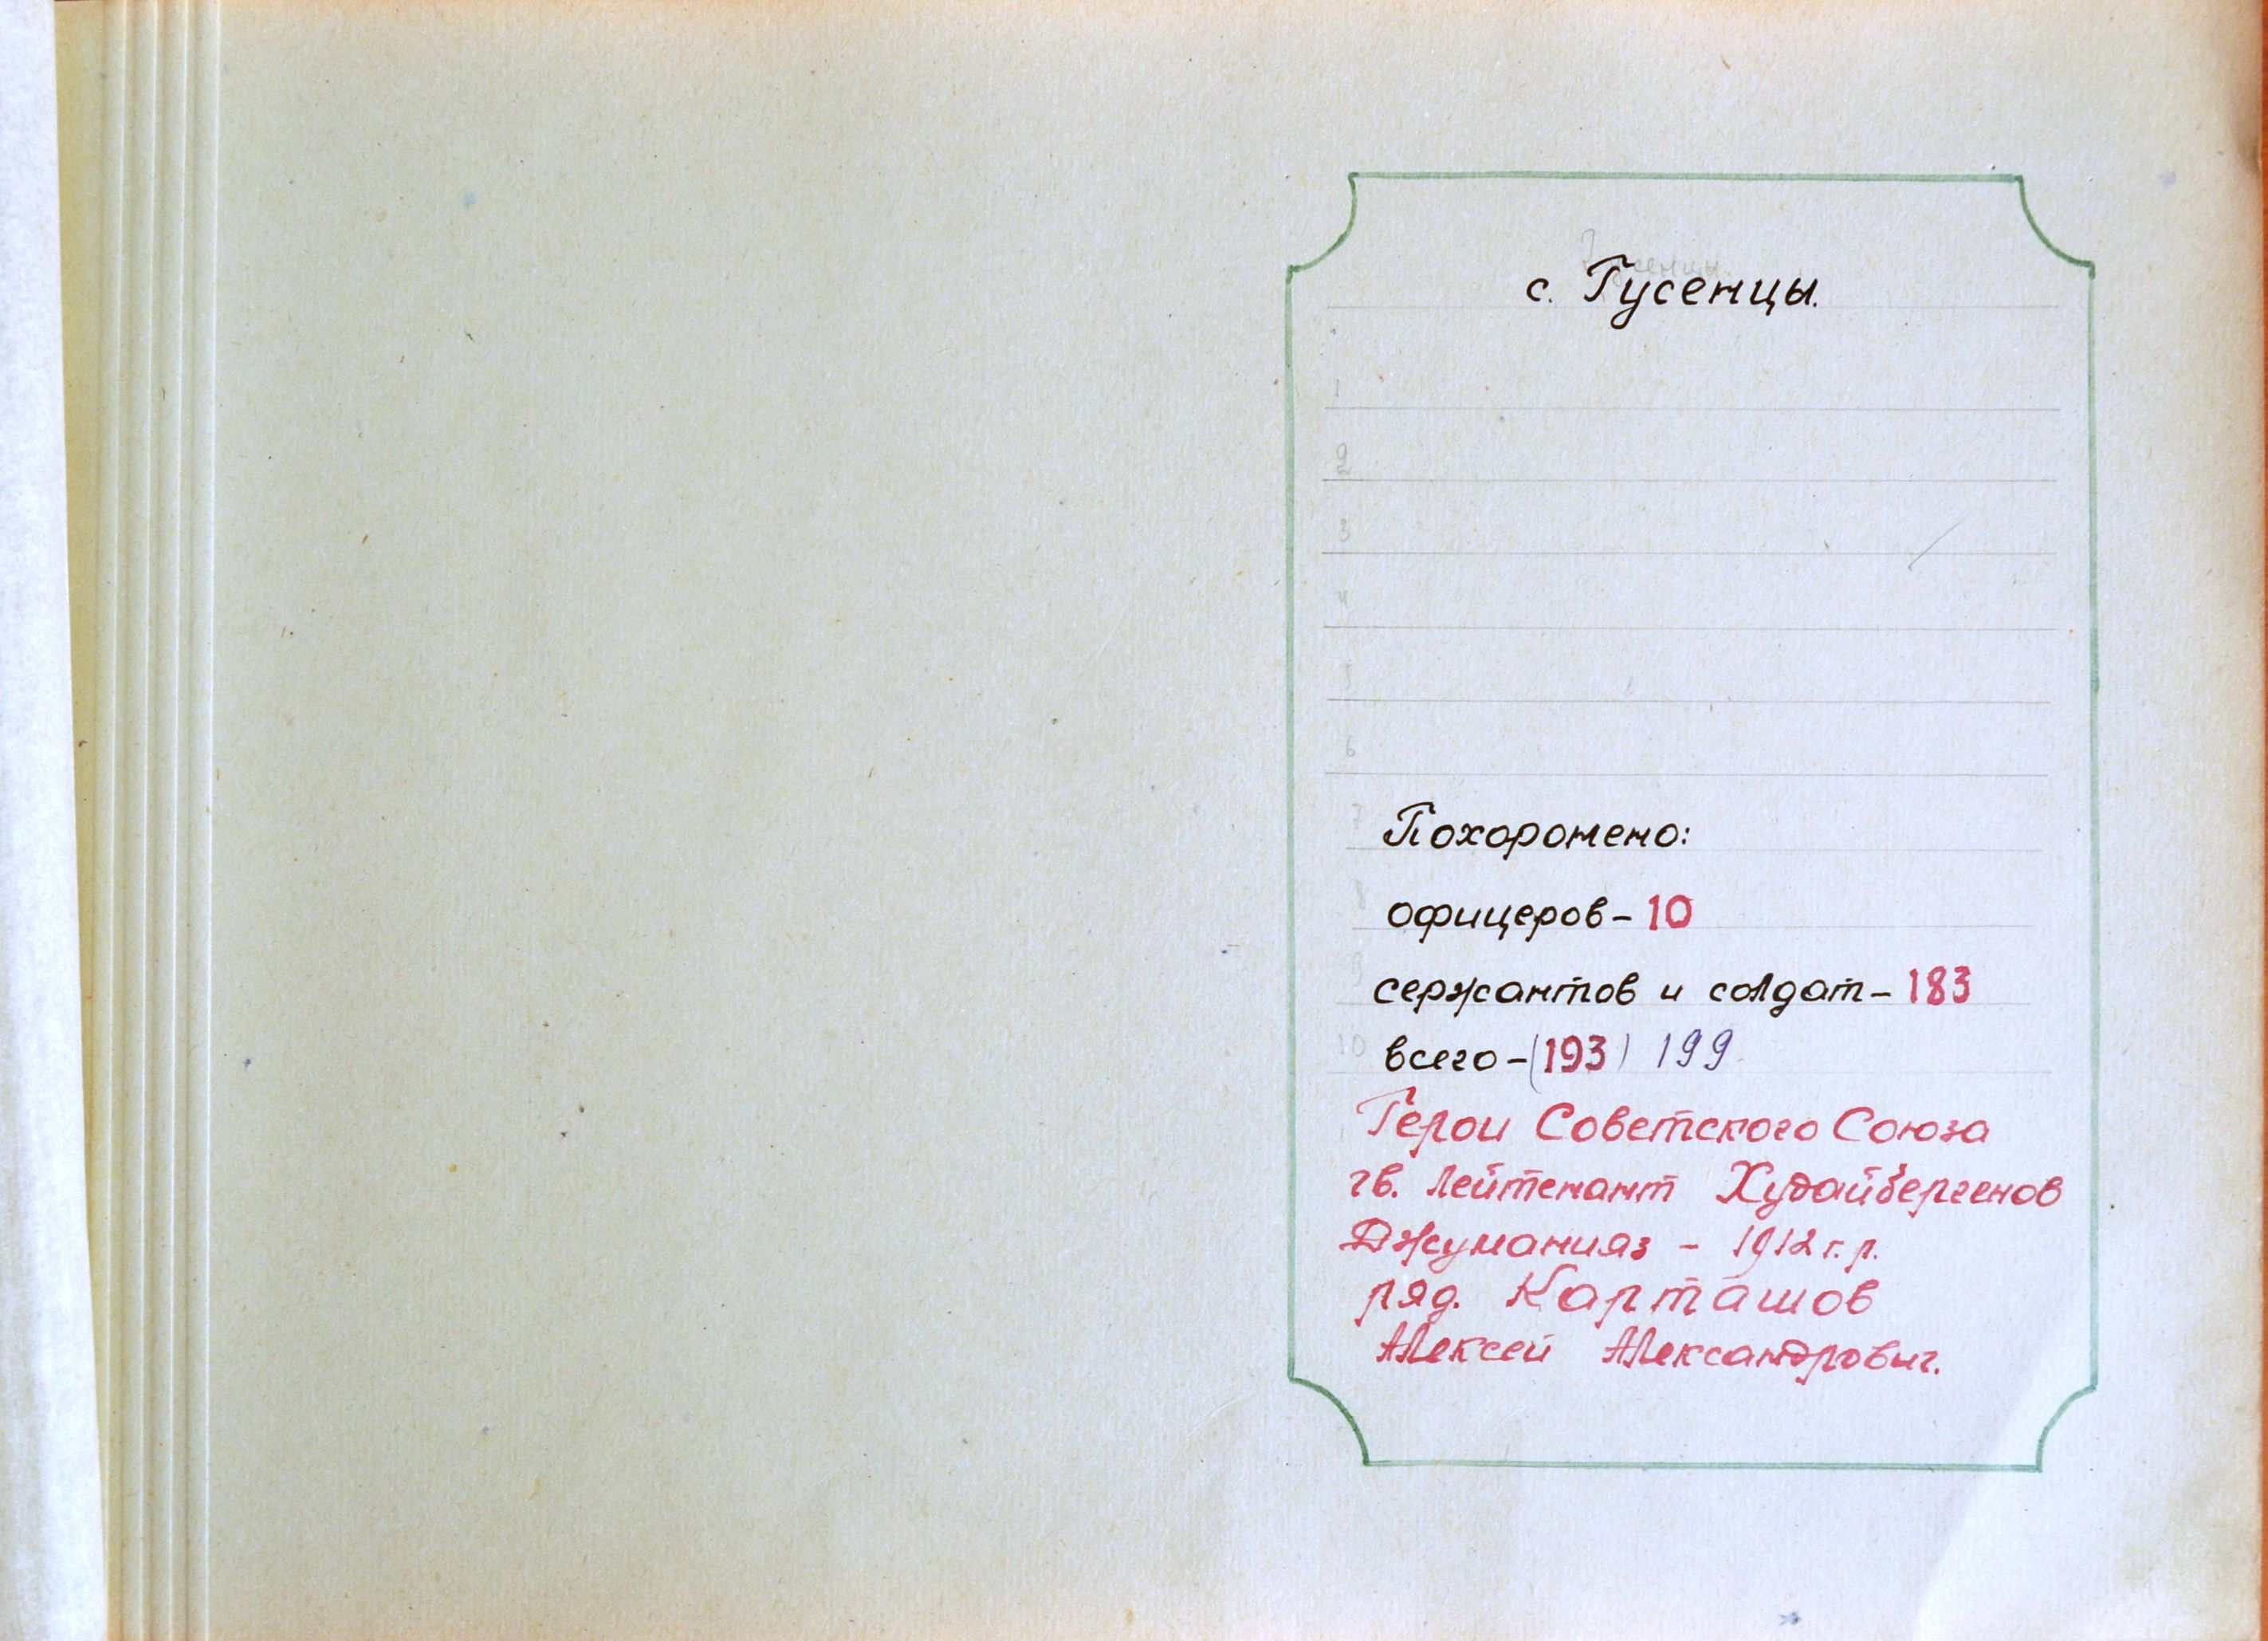 с. Гусенцы.
1
2
3
4
5
6
7
Похоронено:
8
офицеров - 10
9
сержантов и солдат - 183
10
всего - (193) 199
Герои Советского Союза
гв. лейтенант Худайбергенов
Джуманияз - 1912 г.р.
ряд. Карташов
Алексей Александрович.